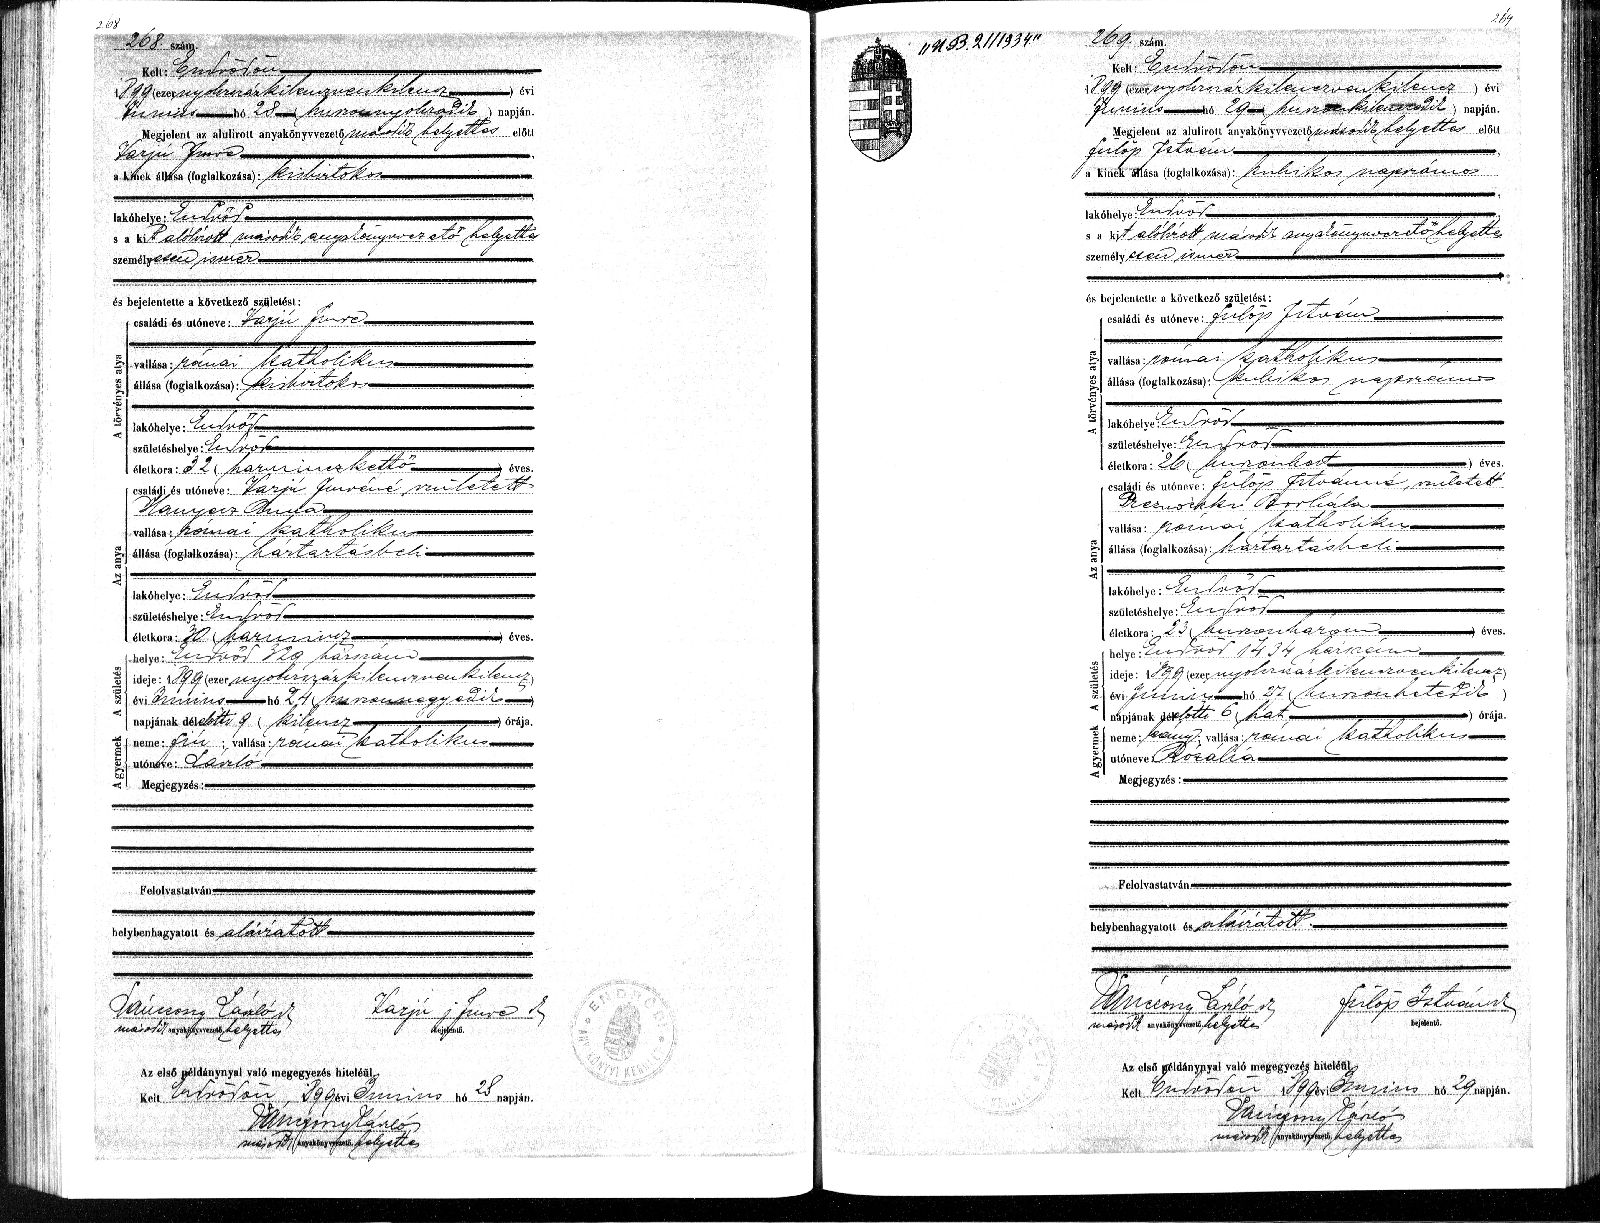 268
268. szám.
Kelt: Endrődön
1899 (ezernyolcszázkilenczvenkilencz) évi
Junius hó 28 (huszonnyolczadik) napján.
Megjelent az alulirott anyakönyvvezető második helyettes előtt
Varjú Imre
a kinek állása (foglalkozása): kisbirtokos
lakóhelye: Endrőd
s a kit alólirott második anyakönyvvezető helyettes
személyesen ismer
és bejelentette a következő születést:
A törvényes atya
családi és utóneve: Varjú Imre
vallása: római katholikus
állása (foglalkozása): kisbirtokos
lakóhelye: Endrőd
születéshelye: Endrőd
életkora: 32 (harminczkettő) éves.
Az anya
családi és utóneve: Varjú Imréné született
Hanyecz Anna
vallása: római katholikus
állása (foglalkozása): háztartásbeli
lakóhelye: Endrőd
születéshelye: Endrőd
életkora: 30 (harmincz) éves.
A születés
helye: Endrőd 329 házszám
ideje: 1899 (ezernyolcszázkilenczvenkilencz)
évi Junius hó 24 (huszonnegyedik)
napjának délelőtti 9 (kilencz) órája.
A gyermek
neme: fiú; vallása: római katholikus
utóneve: László
Megjegyzés:
Felolvastatván
helybenhagyatott és aláiratott
László
második anyakönyvvezető helyettes
Varjú j Imre
bejelentő.
ENDRŐDI ANYAKÖNYVI KERÜLET
Az első példánynyal való megegyezés hiteléül.
Kelt Endrődön 1899 évi Junius hó 28 napján.
László
második anyakönyvvezető helyettes
269
„M.B. 211934"
269. szám.
Kelt: Endrődön
1899 (ezernyolcszázkilenczvenkilencz) évi
Junius hó 29 (huszonkilenczedik) napján.
Megjelent az alulirott anyakönyvvezető második helyettes előtt
Fülöp István
a kinek állása (foglalkozása): kubikos napszámos
lakóhelye: Endrőd
s a kit alólirott második anyakönyvvezető helyettes
személyesen ismer
és bejelentette a következő születést:
A törvényes atya
családi és utóneve: Fülöp István
vallása: római katholikus
állása (foglalkozása): kubikos napszámos
lakóhelye: Endrőd
születéshelye: Endrőd
életkora: 26 (huszonhat) éves.
Az anya
családi és utóneve: Fülöp Istvánné, született
Borbála
vallása: római katholikus
állása (foglalkozása): háztartásbeli
lakóhelye: Endrőd
születéshelye: Endrőd
életkora: 23 (huszonhárom) éves.
A születés
helye: Endrőd 1434 házszám
ideje: 1899 (ezernyolcszázkilenczvenkilencz)
évi Junius hó 27 (huszonhetedik)
napjának délelőtti 6 (hat) órája.
A gyermek
neme: leány; vallása: római katholikus
utóneve: Rozália
Megjegyzés:
Felolvastatván
helybenhagyatott és aláiratott.
László
második anyakönyvvezető helyettes
Fülöp István
bejelentő.
Az első példánynyal való megegyezés hiteléül.
Kelt Endrődön 1899 évi Junius hó 29 napján.
László
második anyakönyvvezető helyettes